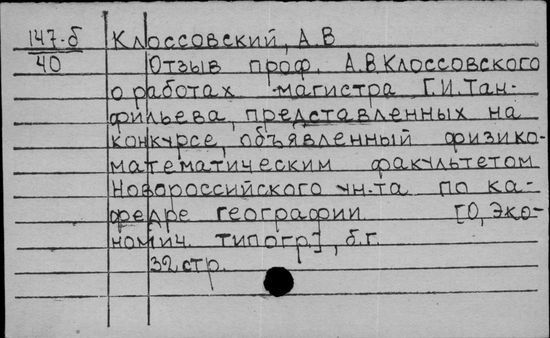 147-б Клоссовский, А.В
40 Отзыв проф. А.В.Клоссовского
о работах магистра Г.И.Тан-
фильева, представленных на
конкурсе, объявленный физико-
математическим факультетом
Новороссийского ун-та по ка-
федре географии. [О, Эко-
номич. типогр.], б.г.
32 стр.